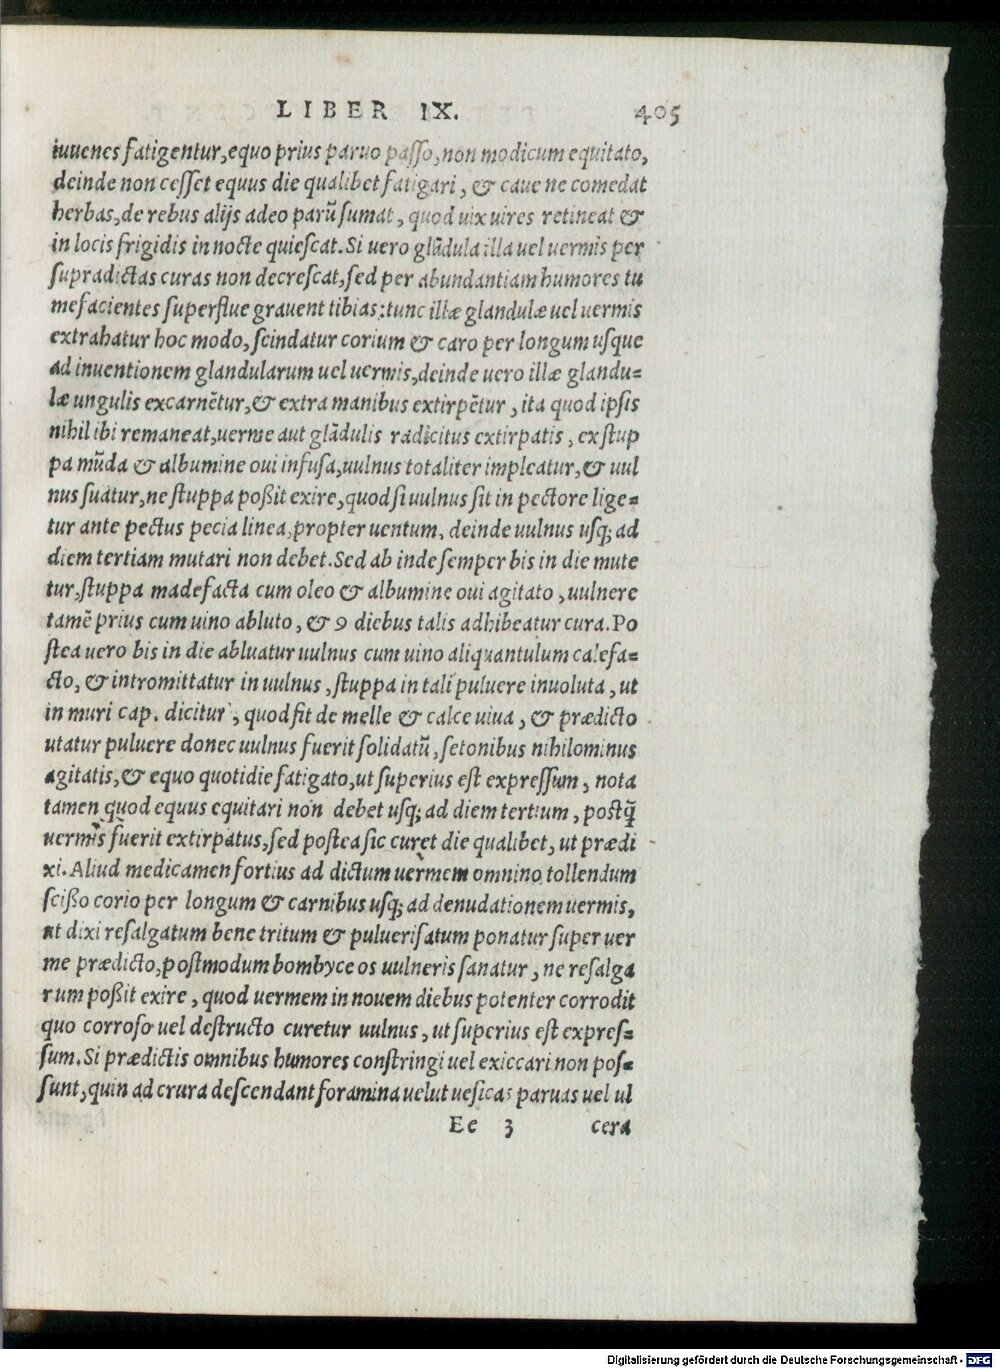 LIBER IX. 405
iuuenes fatigentur, equo prius paruo passo, non modicum equitato,
deinde non cesset equus die qualibet fatigari, & caue ne comedat
herbas, de rebus alijs adeo parũ sumat, quod uix uires retineat &
in locis frigidis in nocte quiescat. Si uero glãdula illa uel uermis per
supradictas curas non decrescat, sed per abundantiam humores tu
mefacientes superflue grauent tibias: tunc illæ glandulæ uel uermis
extrahatur hoc modo, scindatur corium & caro per longum usque
ad inuentionem glandularum uel uermis, deinde uero illæ glandu=
læ ungulis excarnẽtur, & extra manibus extirpẽtur, ita quod ipsis
nihil ibi remaneat, uerme aut glãdulis radicitus extirpatis, ex stup
pa mũda & albumine oui infusa, uulnus totaliter impleatur, & uul
nus suatur, ne stuppa poßit exire, quod si uulnus sit in pectore lige=
tur ante pectus pecia linea, propter uentum, deinde uulnus usq; ad
diem tertiam mutari non debet. Sed ab inde semper bis in die mute
tur, stuppa madefacta cum oleo & albumine oui agitato, uulnere
tamẽ prius cum uino abluto, & 9 diebus talis adhibeatur cura. Po
stea uero bis in die abluatur uulnus cum uino aliquantulum calefa=
cto, & intromittatur in uulnus, stuppa in tali puluere inuoluta, ut
in muri cap. dicitur, quod fit de melle & calce uiua, & prædicto
utatur puluere donec uulnus fuerit solidatũ, setonibus nihilominus
agitatis, & equo quotidie fatigato, ut superius est expressum, nota
tamen quod equus equitari non debet usq; ad diem tertium, postq̃
uermis fuerit extirpatus, sed postea sic curet die qualibet, ut prædi
xi. Aliud medicamen fortius ad dictum uermem omnino tollendum
scißo corio per longum & carnibus usq; ad denudationem uermis,
ut dixi resalgatum bene tritum & puluerisatum ponatur super uer
me prædicto, postmodum bombyce os uulneris sanatur, ne resalga
rum poßit exire, quod uermem in nouem diebus potenter corrodit
quo corroso uel destructo curetur uulnus, ut superius est expres=
sum. Si prædictis omnibus humores constringi uel exiccari non pos=
sunt, quin ad crura descendant foramina uelut uesicas paruas uel ul
Ee 3 cera
Digitalisierung gefördert durch die Deutsche Forschungsgemeinschaft - DFG